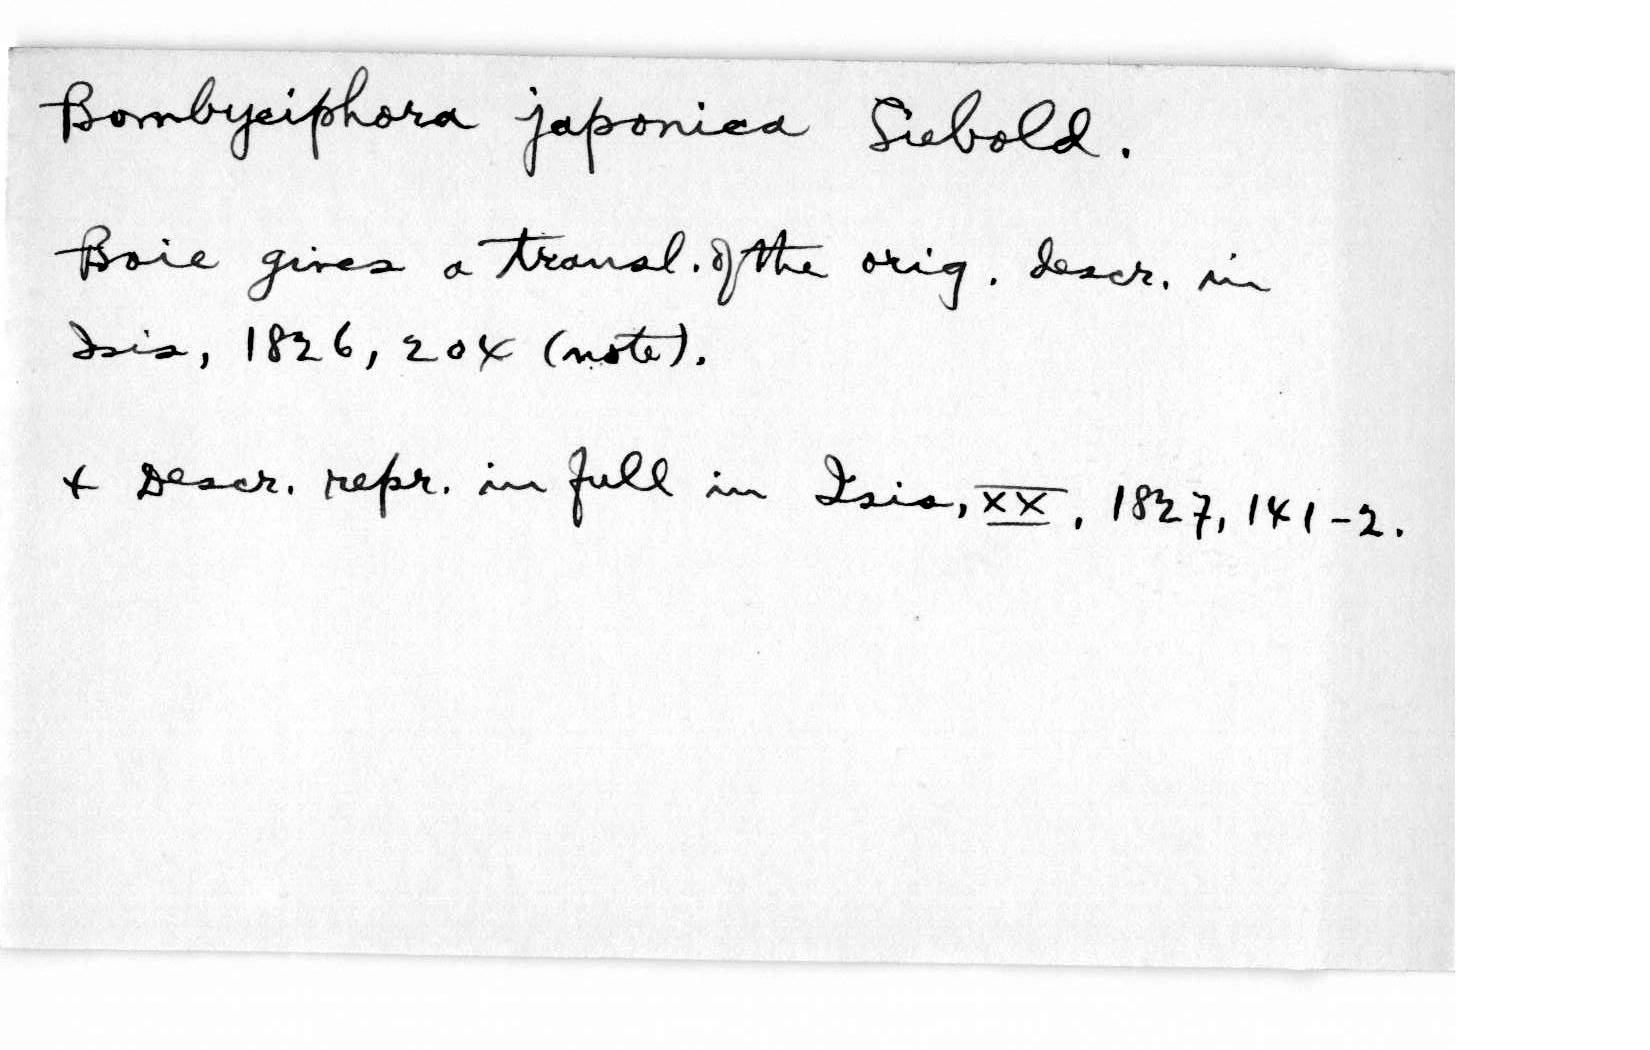 Bombyciphora japonica Siebold.
Boie gives a transl. of the orig. descr. in
Isis, 1826, 204 (note).
+ Descr. repr. in full in Isis, XX, 1827, 141-2.